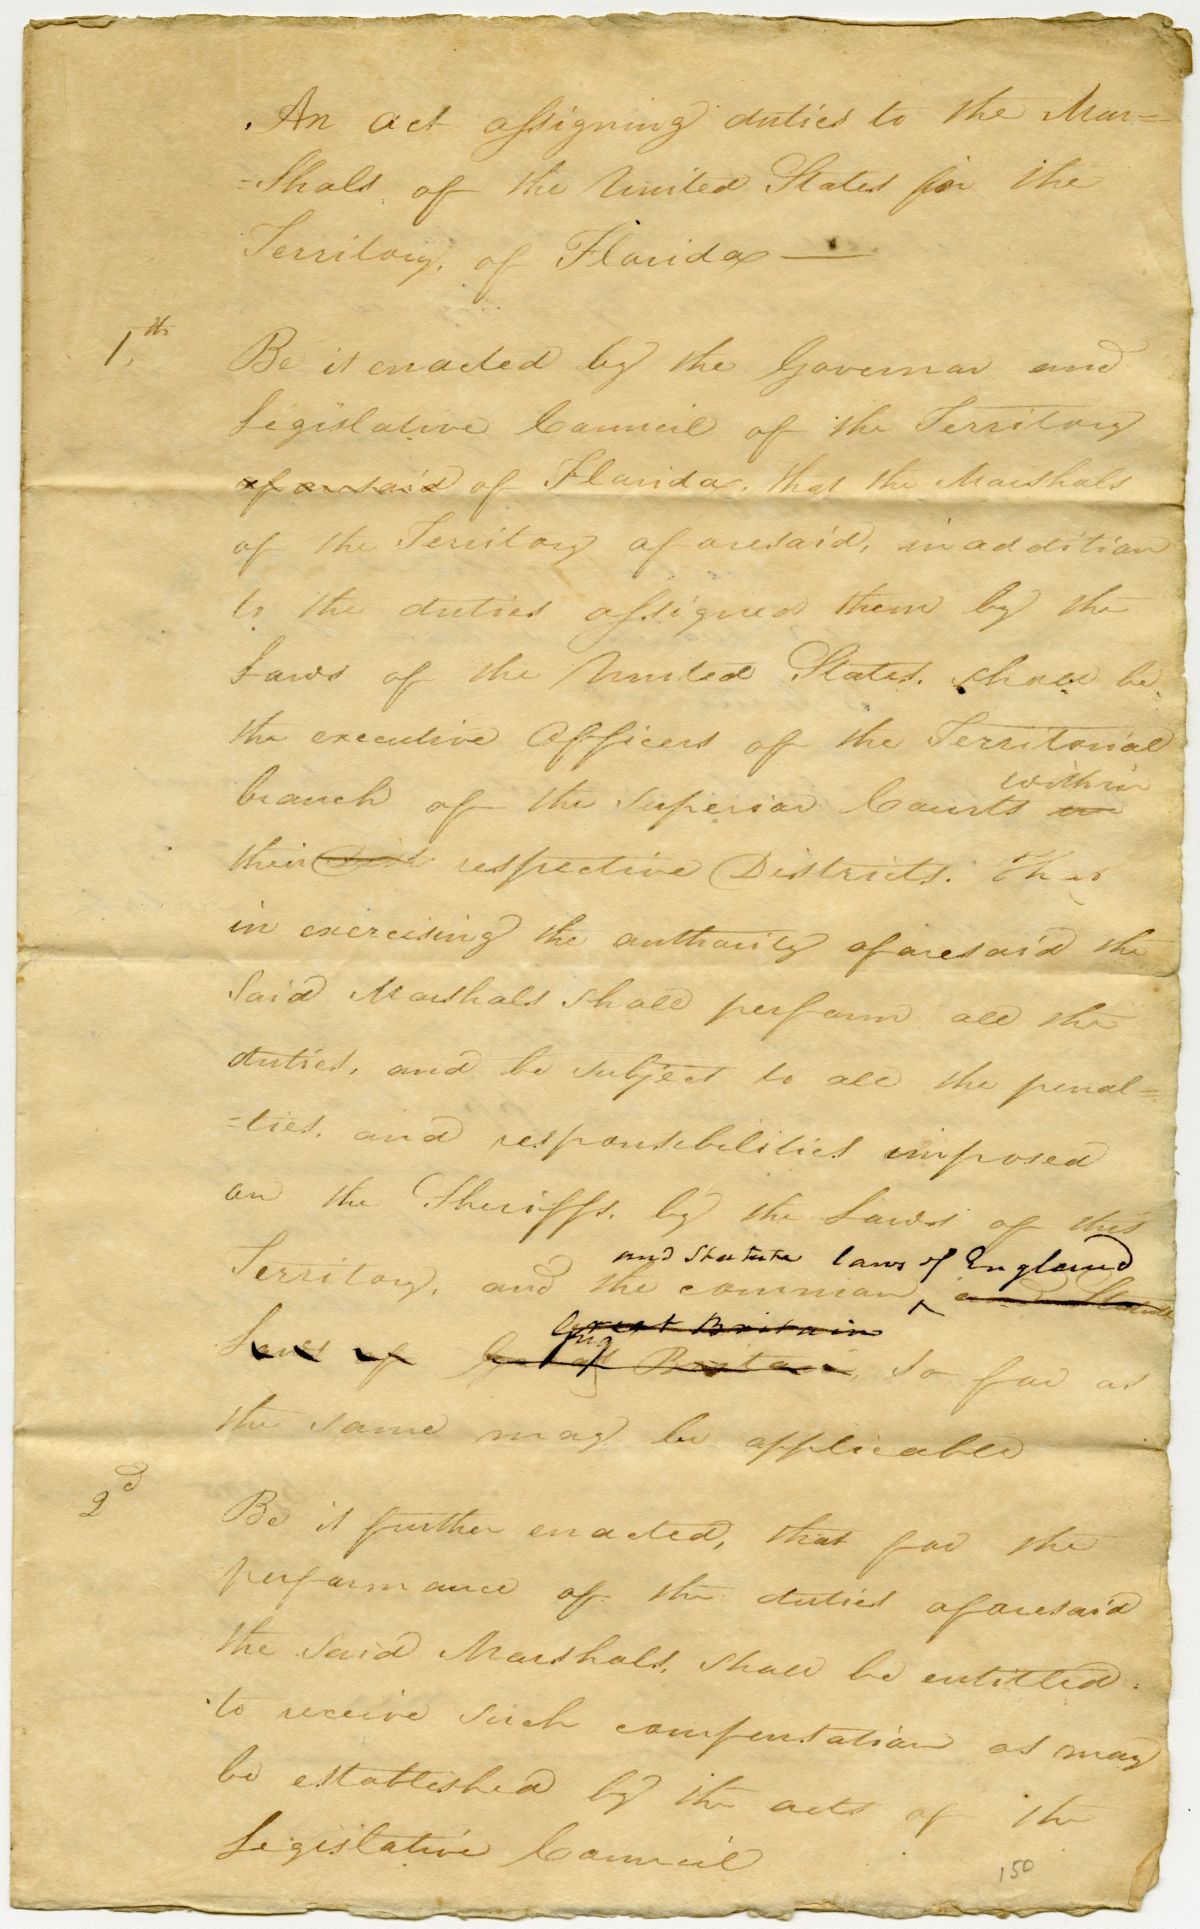 An act assigning duties to the Mar=
=shals of the United States for the
Territory, of Florida —
1.th
Be it enacted by the Governor and
Legislative Council of the Territory
aforesaid of Florida, that the Marshals
of the Territory aforesaid, in addition
to the duties assigned them by the
Laws of the United States, shall be
the executive Officers of the Territorial
within
branch of the superior Courts in
their Dist respective Districts. That
in exercising the authority aforesaid the
said Marshals shall perform all the
duties, and be subject to all the penal=
=ties, and responsibilities imposed
on the Sheriffs, by the Laws of this
and Statute laws of England
Territory, and the common ‸ and Statute
Great Britain
Laws of Great Britain, so far as
the same may be applicable
2d
Be it further enacted, that for the
performance of the duties aforesaid
the said Marshals, shall be entitled
to receive such compensation as may
be established by the acts of the
Legislative Council
150